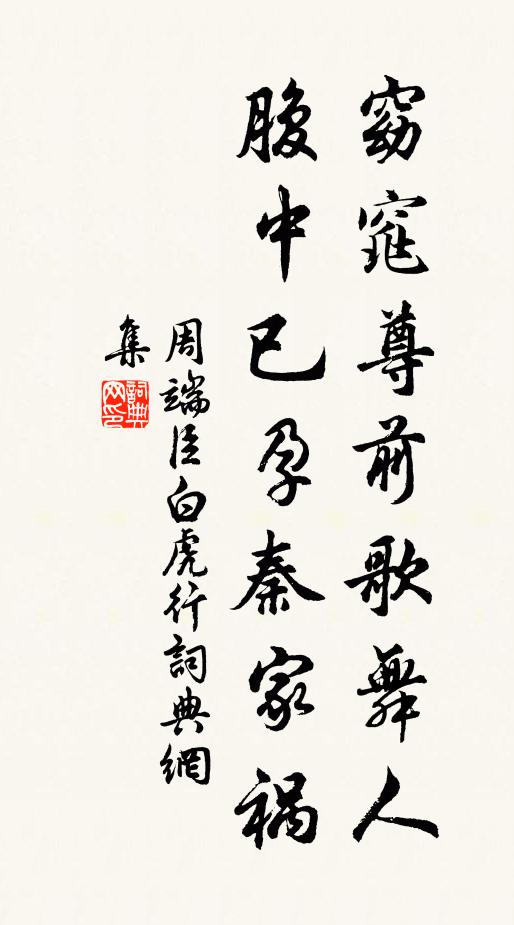 窈窕尊前歌舞人
腹中已孕秦家禍
周端臣白虎行詞典網
集
詞典
网印